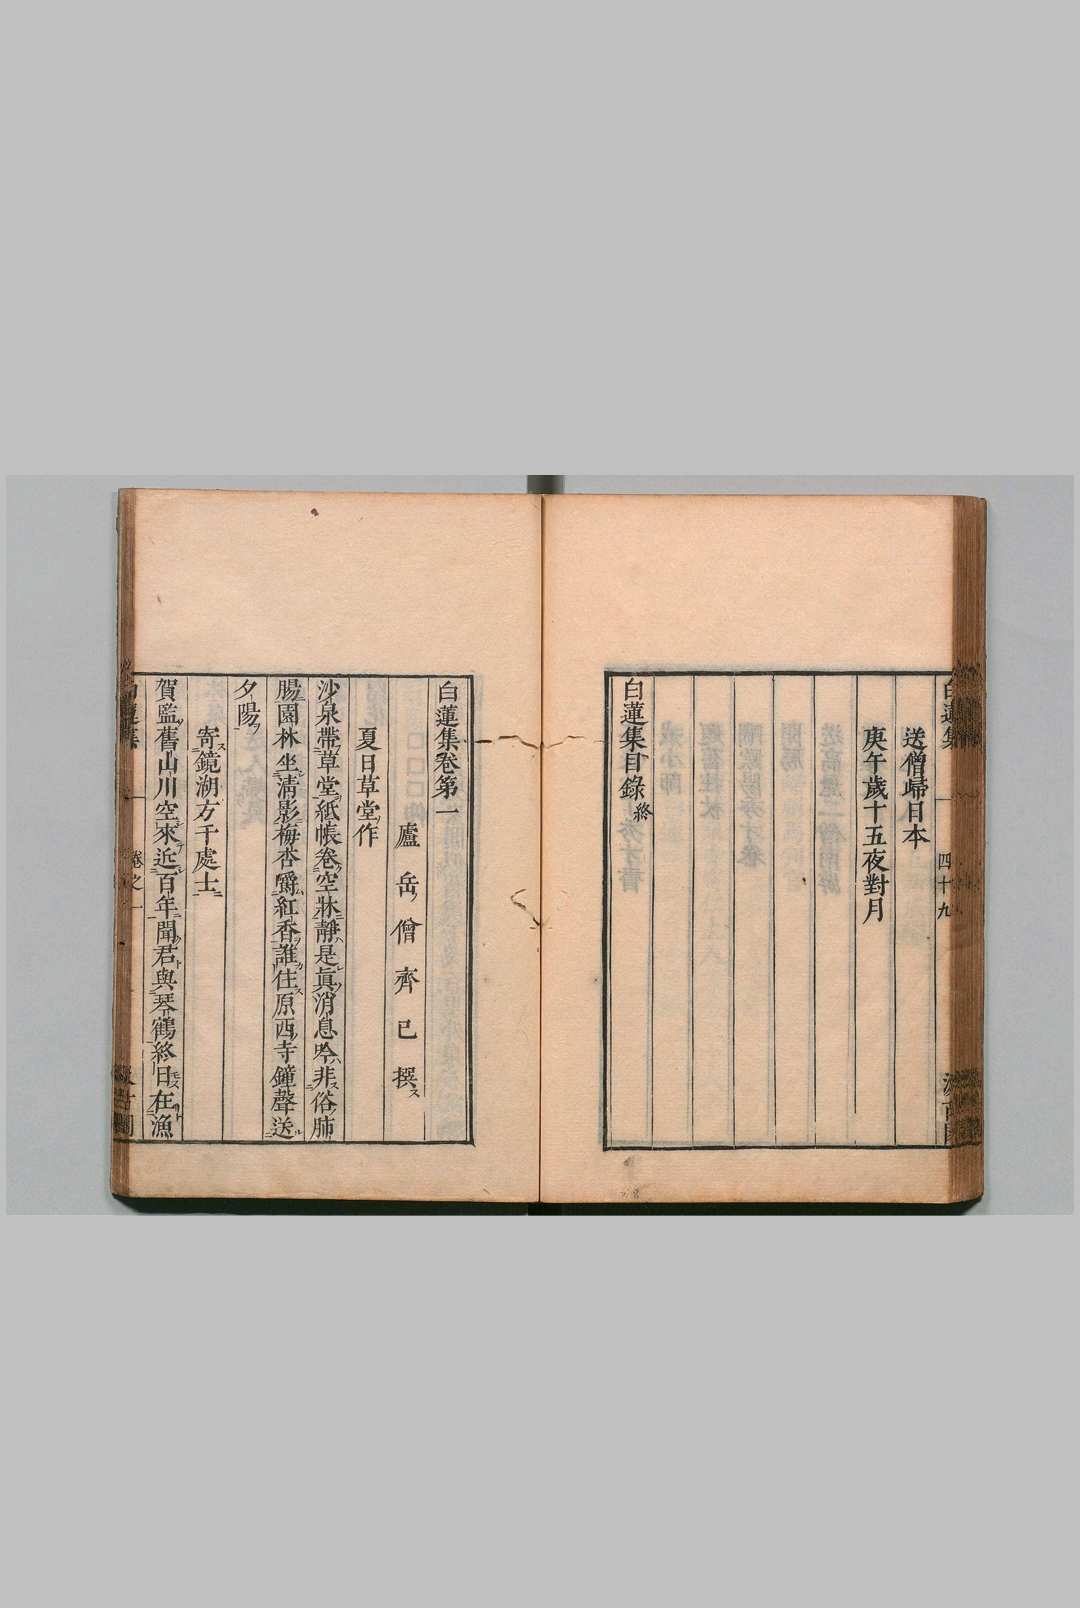 白蓮集
四十九
送僧歸日本
庚午歲十五夜對月
白蓮集目錄終
白蓮集卷第一
廬岳僧齊己撰
夏日草堂作
沙泉帶草堂紙帳卷空牀靜是眞消息吟非俗肺
腸園林坐淸影梅杏嚼紅香誰住原西寺鐘聲送
夕陽
寄鏡湖方干處士
賀監舊山川空來近百年聞君與琴鶴終日在漁
卷之一